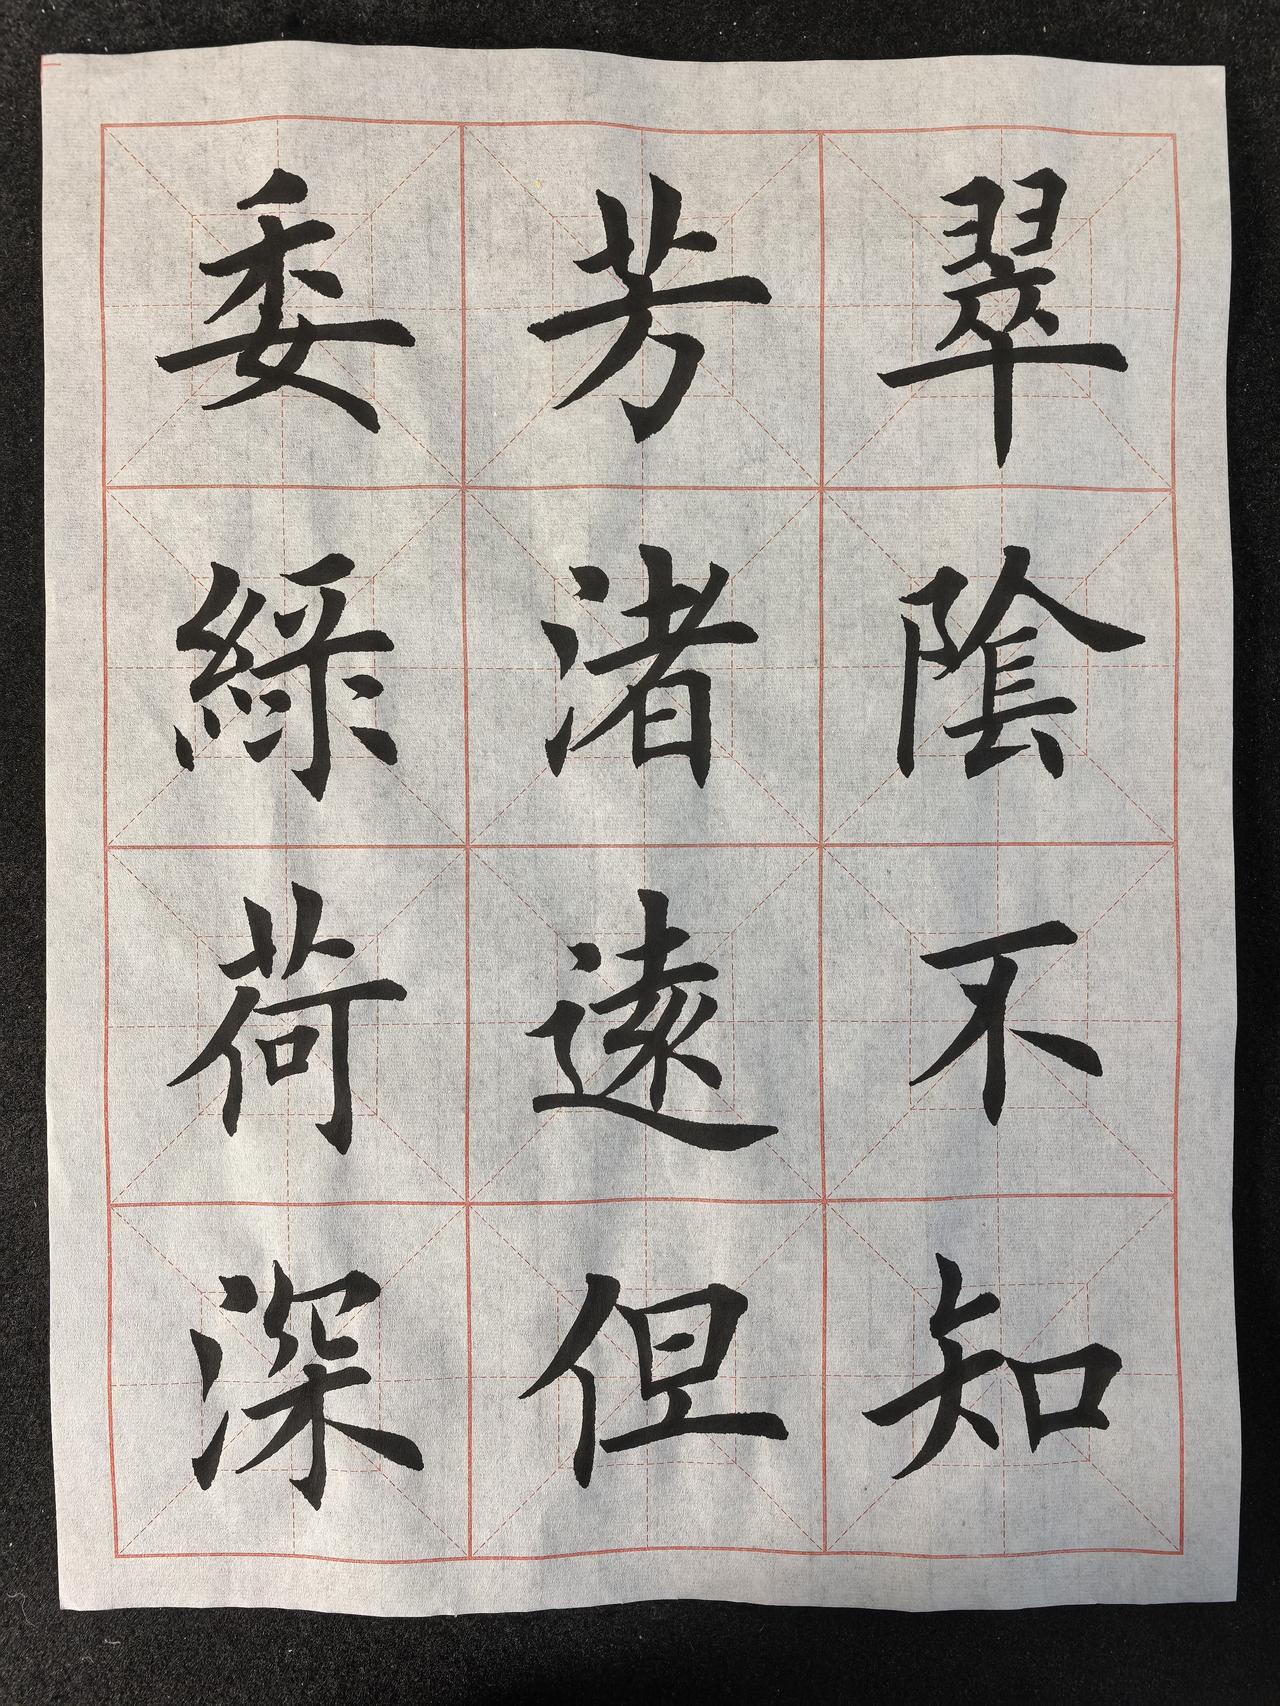 翠陰不知
芳渚遠但
委綠荷深